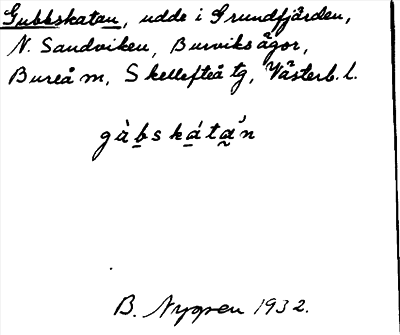 Gubbskatan, udde i Grundfjärden,
N. Sandviken, Burviks ägor,
Bureå m, Skellefteå tg, Västerb. l.
gàbskátan
B. Nygren 1932.